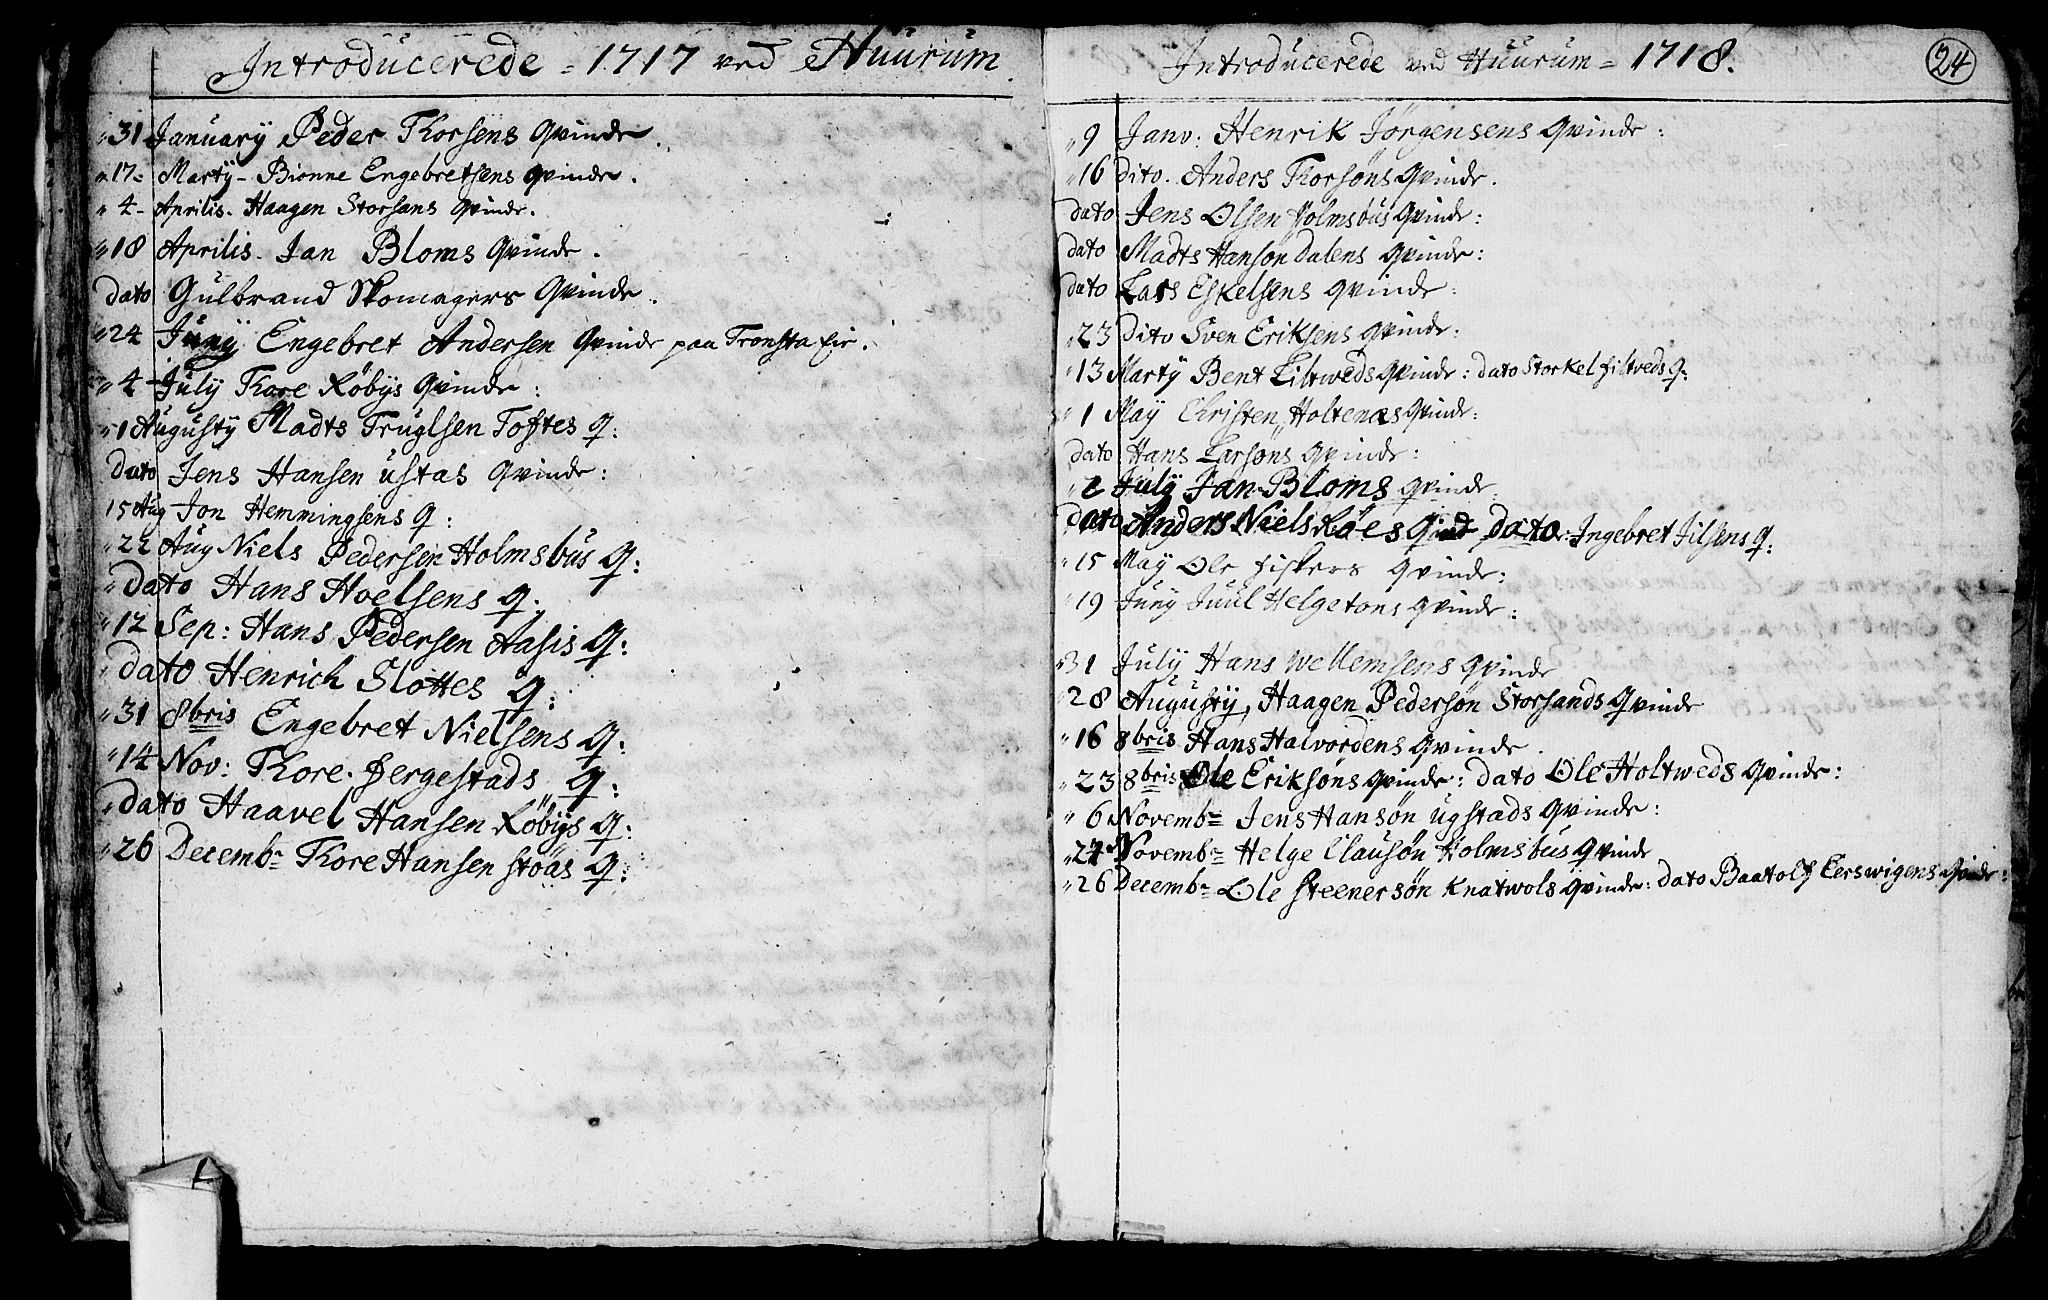 Introducerede = 1717 ved Huurum.
"31 January Peder Thorsens Qvinde.
"17= Marty - Bionne Engebretsens qvinde.
"4- Aprilis. Haagen Storsans qvinde.
"18 Aprilis. Jan Bloms Qvinde.
dato Gulbrand Skomagers Qvinde.
"24 Juny Engebret Andersen Qvinde paa Tronsta
"4 July Thore Röbÿs Qvinde:
"1 Augusty Madts Truglsen Toftes Q:
Dato Jens Hansen ustas Qvinde:
15 Aug Jon Hemmingsens Q:
"22 Aug Niels Pedersen Holmsbus Q:
"dato Hans Hoelsens Q.
"12 Sep: Hans Pedersen Aasis Q:
"dato Henrich Slottes Q:
"31 8bris Engebret Nielsens Q:
"14 Nov: Thore. Bergestads Q:
"dato Haavel Hansen Röbÿs Q:
"26 Decembr Thore Hansen stöäs Q:
Introducerede ved Huurum = 1718.
24
"9 Janv: Henrik Jørgensens Qvinde:
"16 Dito. Anders Thorsøns Qvinde.
dato Jens Olsen Holmsbus Qvinde:
dato Madts Hansøn Dalens Qvinde:
dato Lars Eskelsens Qvinde:
"23 Dito Sven Eriksens Qvinde:
"13 Marty Bent Filtweds Qvinde: dato Storkel filtveds Q:
"1 Maÿ Christen Holtenæs Qvinde:
dato Hans Larsøns Qvinde:
"2 July Jan Bloms qvinde
Dato Anders Niels Röes Qvind Dato: Ingebret Jilsens Q:
"15 May Ole fiskers Qvinde:
"19 Juny Juul Helgetons Qvinde:
"31 July Hans Wellemsens Qvinde
"28 Augusty, Haagen Pedersøn Storsands Qvinde
"16 8bris Hans Halvordens Qvinde.
"23 8bris Ole Eriksøns Qvinde: dato Ole Holtweds Qvinde:
"6 Novembr Jens Hansøn ugstads Qvinde:
"24 Novembr Helge Clausøn Holmsbus Qvinde
"26 Decembr Ole Steenersøn Knatwols Qvinde: dato Baatolf Eerswigens Qvinde: